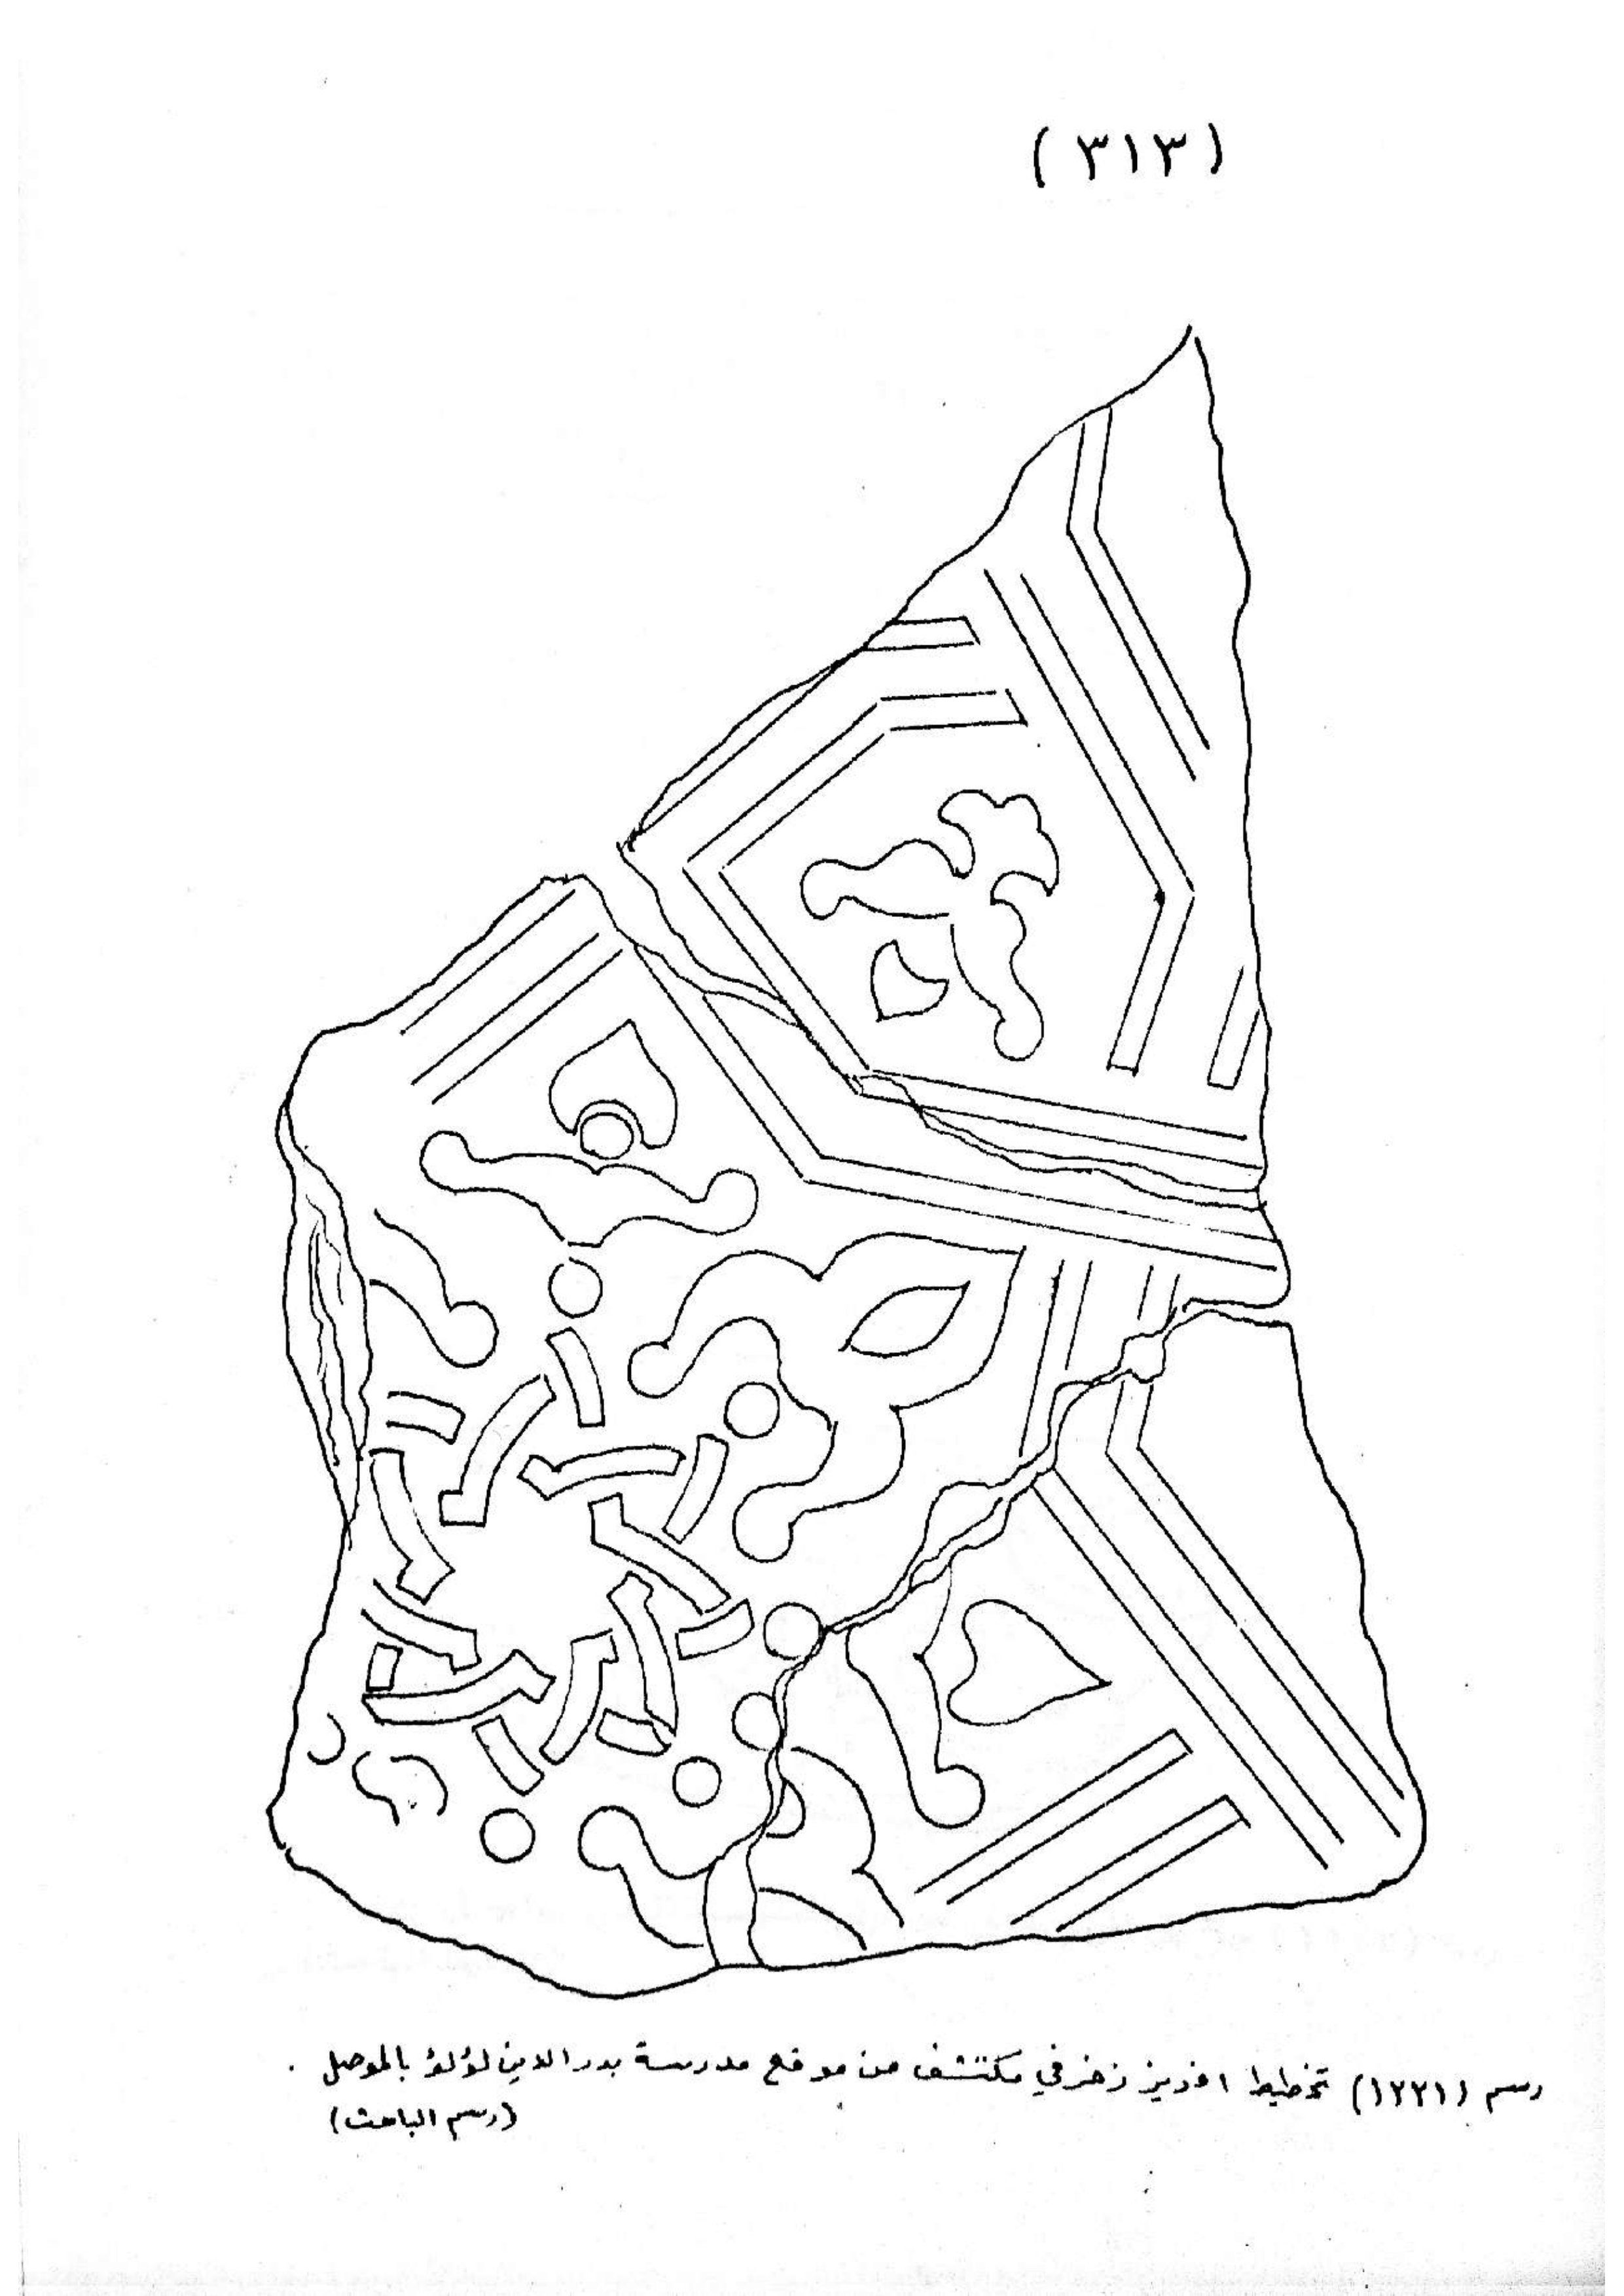 ( ٣١٣ )
رسم (١٢٢١) تخطيط افريز زخرفي مكتشف من موقع مدرسة بدر الدين لؤلؤ بالموصل .
(رسم الباحث)